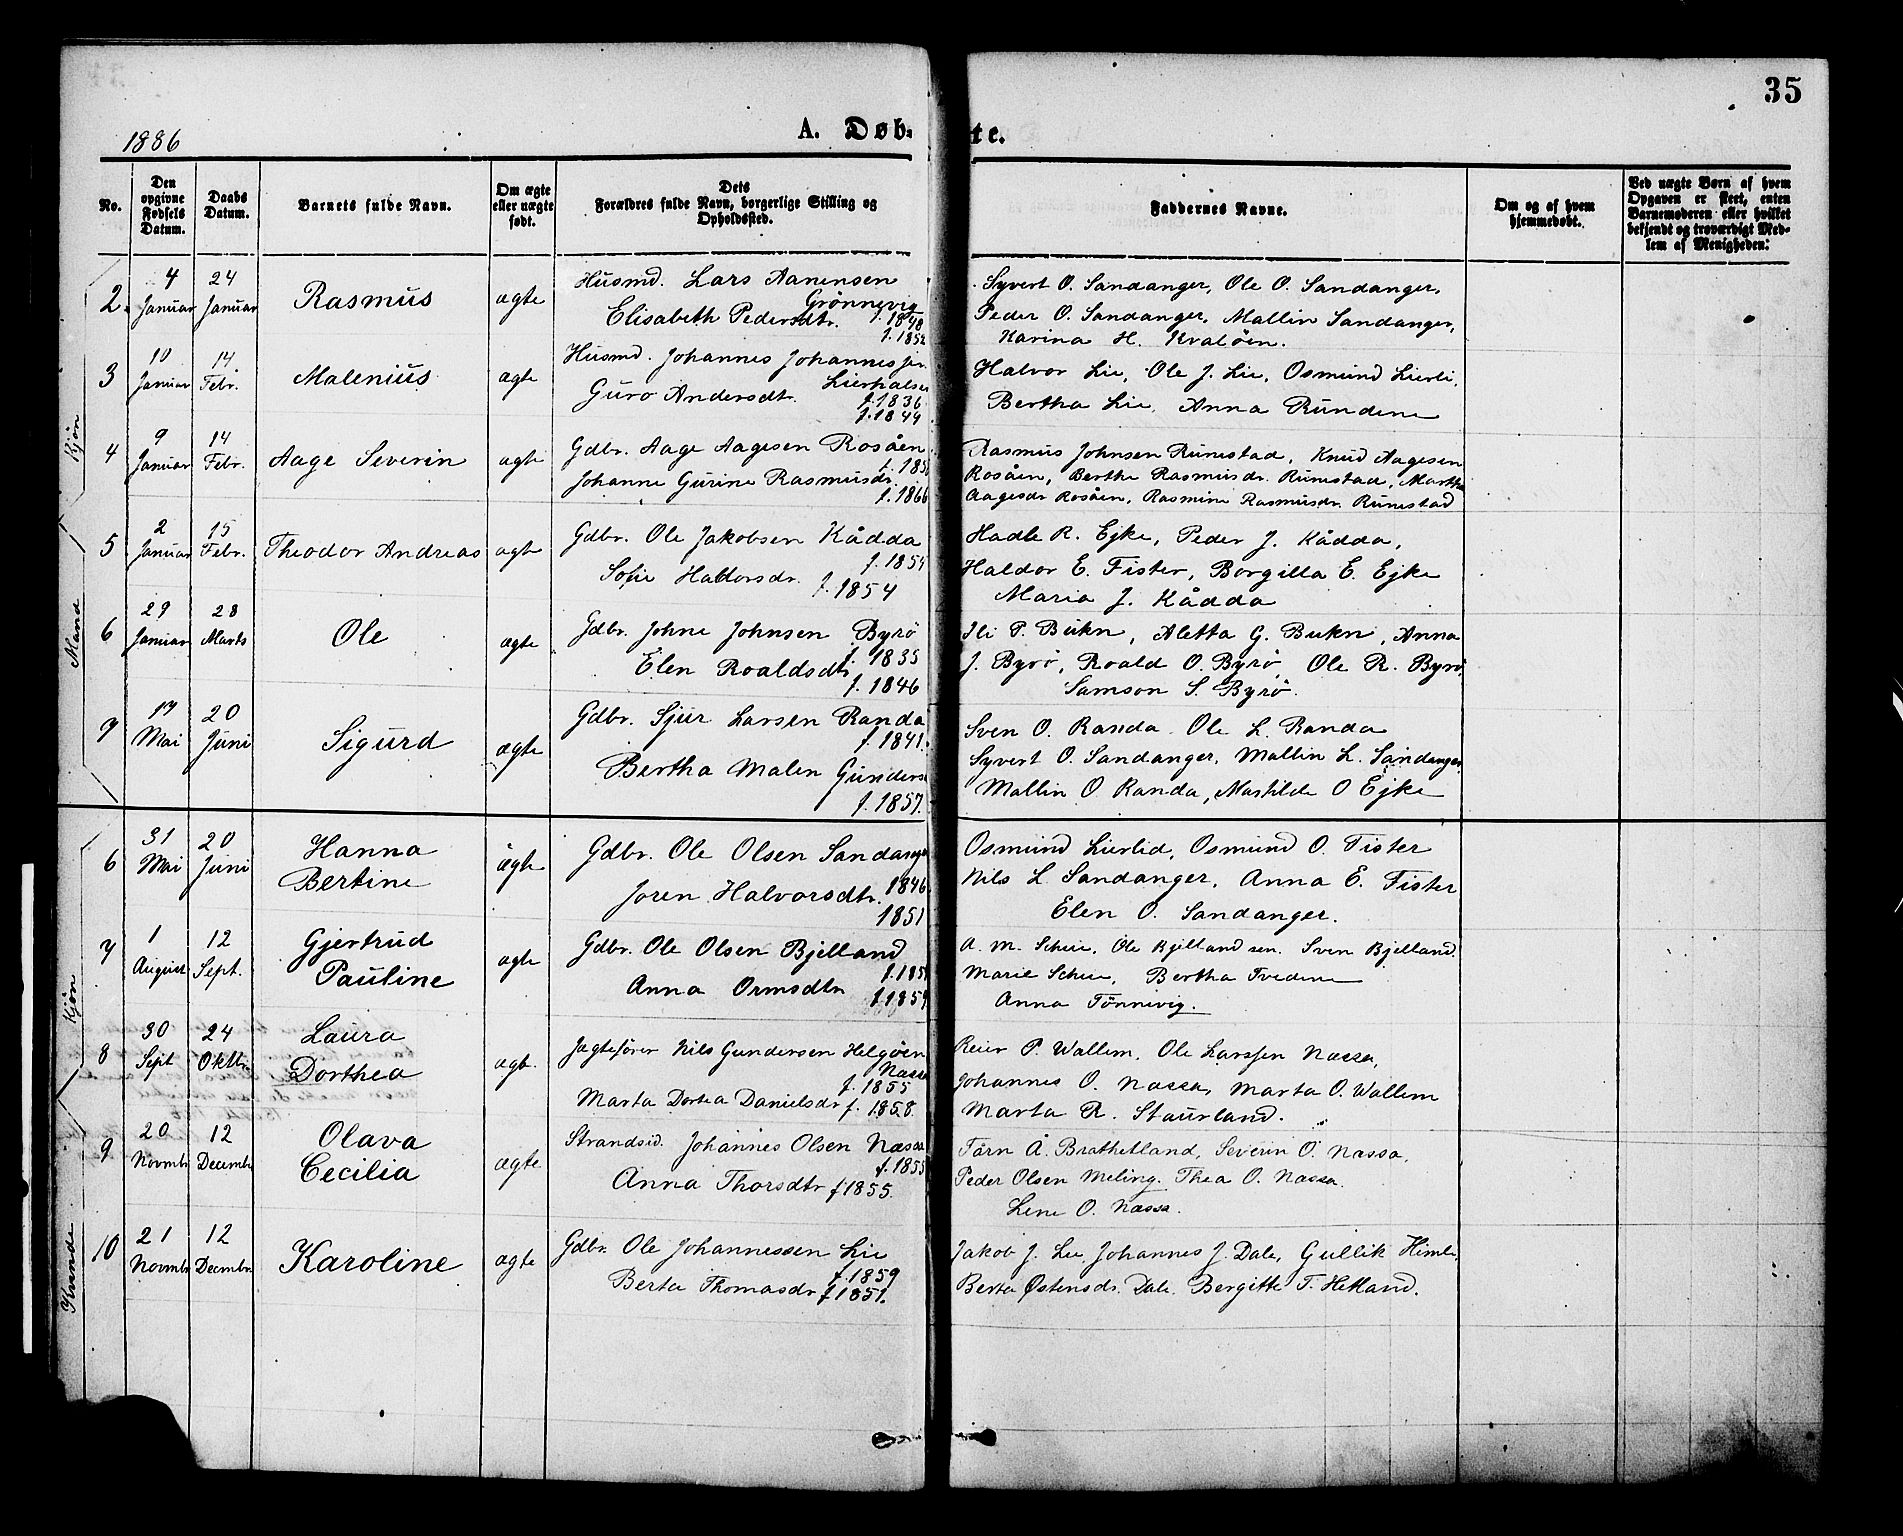 35
1886
A. Døb-
te.
No.
Den opgivne Fødsels Datum.
Daabs Datum.
Barnets fulde Navn.
Om ægte eller uægte født.
Dets Forældres fulde Navn, borgerlige Stilling og Opholdssted.
Faddernes Navne.
Om og af hvem hjemmedøbt.
Ved uægte Børn af hvem Opgaven er skeet, enten Barnemoderen eller hvilket bekjendt og troværdigt Medlem af Menigheden.
Mand Kjön
2. 4 Januar 24 Januar Rasmus ægte Husmd. Lars Aanensen Grönnevig f. 1848
Elisabeth Pedersdtr. f. 1852
Syvert O. Sandanger, Ole O. Sandanger,
Peder O. Sandanger, Mallin Sandanger,
Karina H. Kvalöen.
3 10 Januar 14 Febr. Malenius ægte Husmd. Johannes Johannessen Lierhalsen f. 1836
Guro Andersdtr. f. 1844
Halvor Lie, Ole J. Lie, Osmund Lierli,
Bertha Lie, Anna Rundene
4 9 Januar 14 Febr. Aage Severin ægte Gdbr. Aage Aagesen Rosåen
Johanne Gurine Rasmusdr. f. 1866
Rasmus Johnsen Runestad, Knud Aagesen
Rosåen, Berthe Rasmusdr. Runestad, Martha
Aagesdr Rosåen, Rasmine Rasmusdr. Runestad
5 2 Januar 15 Febr. Theodor Andreas ægte Gdbr. Ole Jakobsen Kådda f. 1854
Sofie Haldorsdr. f. 1854
Hadle R. Ejke, Peder J. Kådda,
Haldor E. Fister, Borgilla E. Ejke
Maria J. Kådda
6 29 Januar 28 Marts Ole ægte Gdbr. Johne Johnsen Byrö f. 1835
Elen Roaldsdtr. f. 1846
Ili P. Bukn, Aletta G. Bukn, Anna
J. Byrö, Roald O. Byrö, Ole R. Byrö,
Samson S. Byrö.
7 17 Mai 20 Juni Sigurd ægte Gdbr. Sjur Larsen Randa f. 1841.
Bertha Malen Gunders f. 1857.
Sven O. Randa Ole L. Randa
Syvert O. Sandanger, Mallin L. Sandanger,
Mallin O Randa, Mathilde O Ejke
Kvinde Kjön
6 31 Mai 20 Juni Hanna Bertine ægte Gdbr. Ole Olsen Sandanger 1846
Joren Halvorsdtr. 1851
Osmund Lierlid, Osmund O. Fister
Nils L Sandanger, Anna E. Fister
Elen O. Sandanger.
7 1 August 12 Sept. Gjertrud Pauline ægte Gdbr. Ole Olsen Bjelland
Anna Ormsdtr f. 1854
A. M. Scheie, Ole Bjelland sen. Sven Bjelland.
Marie Scheie, Bertha Tvedene
Anna Tönnivig.
8 30 Sept 24 Oktbr Laura Dorthea ægt. Jagtefører Nils Gundersen Helgöen Næssa f. 1855
Marta Dortea Danielsdr f. 1858.
Reier P. Wallem, Ole Larssen Næssa,
Johannes O. Næssa, Marta O. Wallem
Marta R. Staurland.
9 20 Novmbr 12 Decembr Olava Cecilia ægte Strandsid. Johannes Olsen Næssa f. 1855
Anna Thorsdtr f 1855.
Tårn Å. Brathetland, Severin O. Næssa,
Peder Olsen Meling. Thea O. Næssa.
Lene O. Næssa.
10 21 Novmbr 12 Decmbr. Karoline ægte Gdbr. Ole Johannessen Lie f. 1859
Berta Thomasdr f 1851.
Jakob J. Lie, Johannes J. Dale, Gullik Himle
Berta Østensdr. Dale. Bergitte T. Hetland.